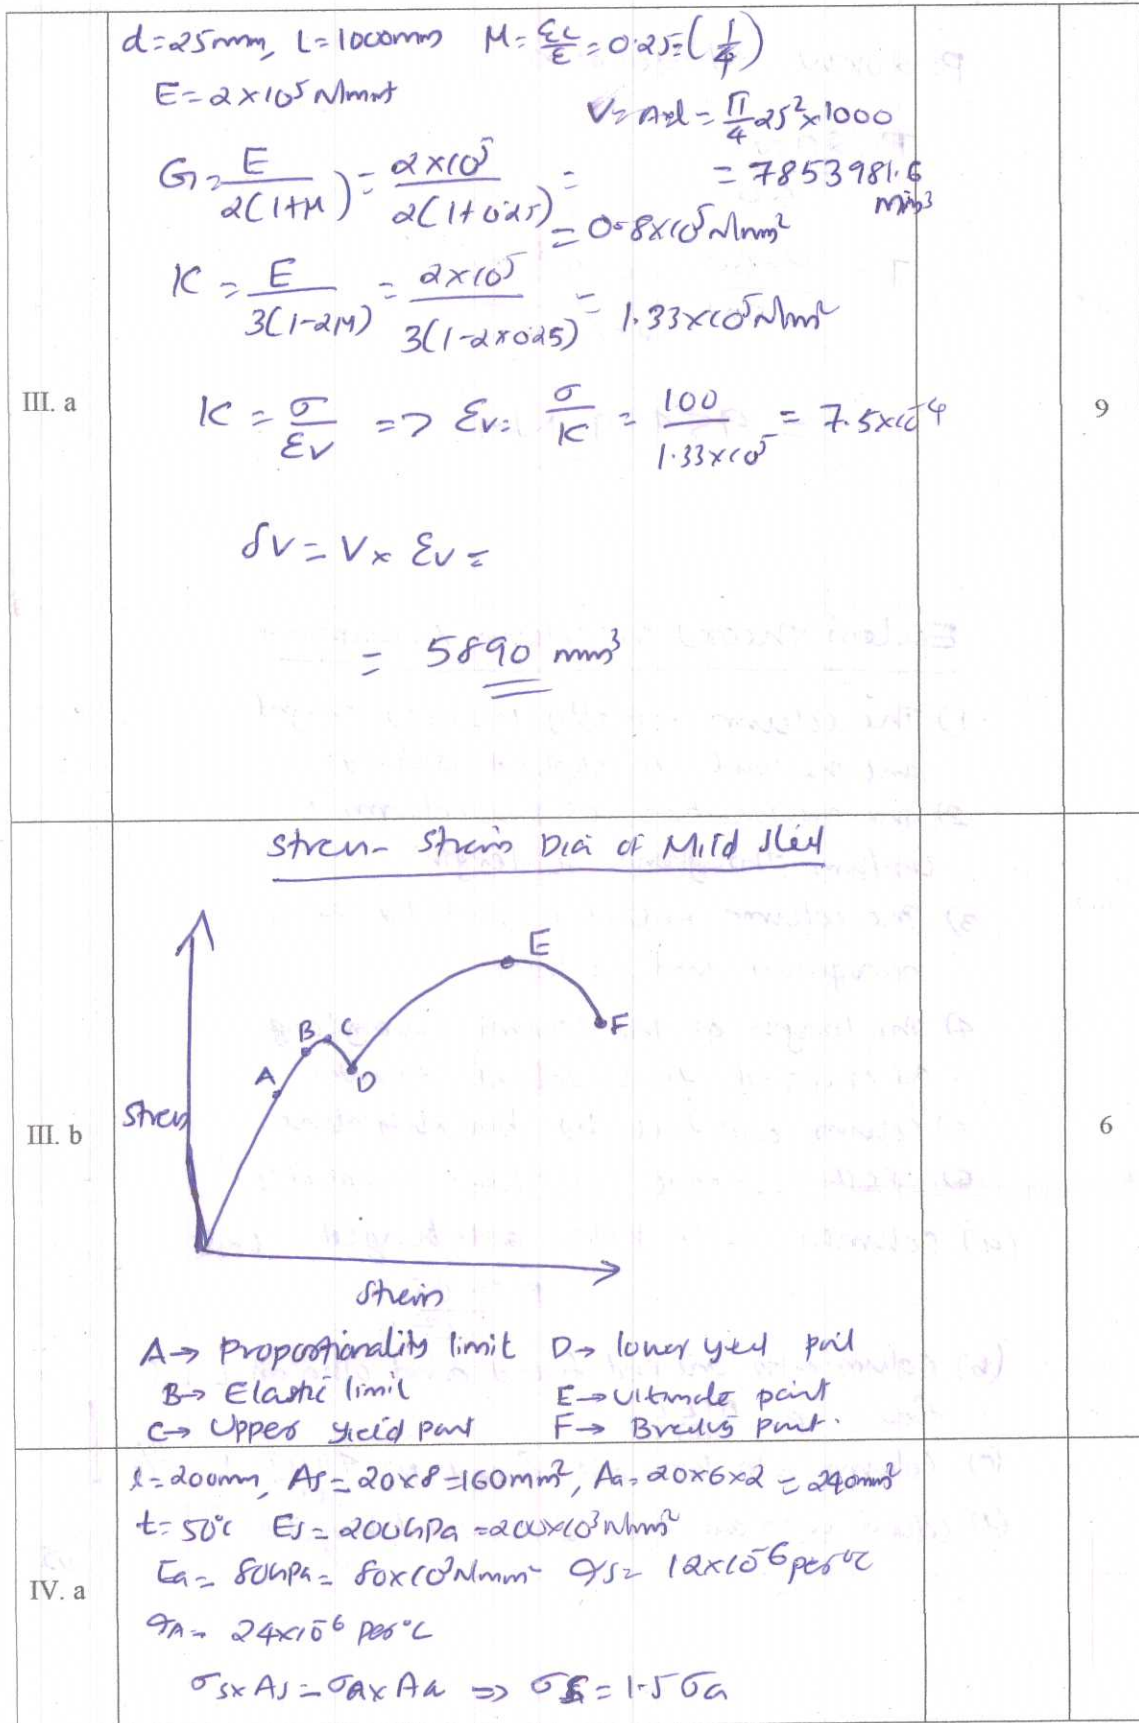 d=25mm, L=1000mm M=εL/ε=0.25=(1/4)
E=2×10⁵N/mm²
V=A×l=π/4 25²×1000
=7853981.6 mm³
G=E/2(1+M)=2×10⁵/2(1+0.25)=
=0.8×10⁵N/mm²
K=E/3(1-2M)=2×10⁵/3(1-2×0.25)=1.33×10⁵N/mm²
III. a
K=σ/εv => εv=σ/K=100/1.33×10⁵=7.5×10⁻⁴
9
δV=V×εv=
=5890 mm³
Stress-Strain Dia of Mild Steel
E
F
B
C
A
D
Stress
III. b
6
Strain
A→ Proportionality limit D→ lower yield point
B→ Elastic limit E→ Ultimate point
C→ Upper yield point F→ Breaking point.
l=200mm, As=20×8=160mm², Aa=20×6×2=240mm²
t=50°C Es=200GPa=200×10³N/mm²
Ea=80GPa=80×10³N/mm² αs=12×10⁻⁶ per°C
IV. a
αA=24×10⁻⁶ per°C
σs×As=σa×Aa => σs=1.5σa